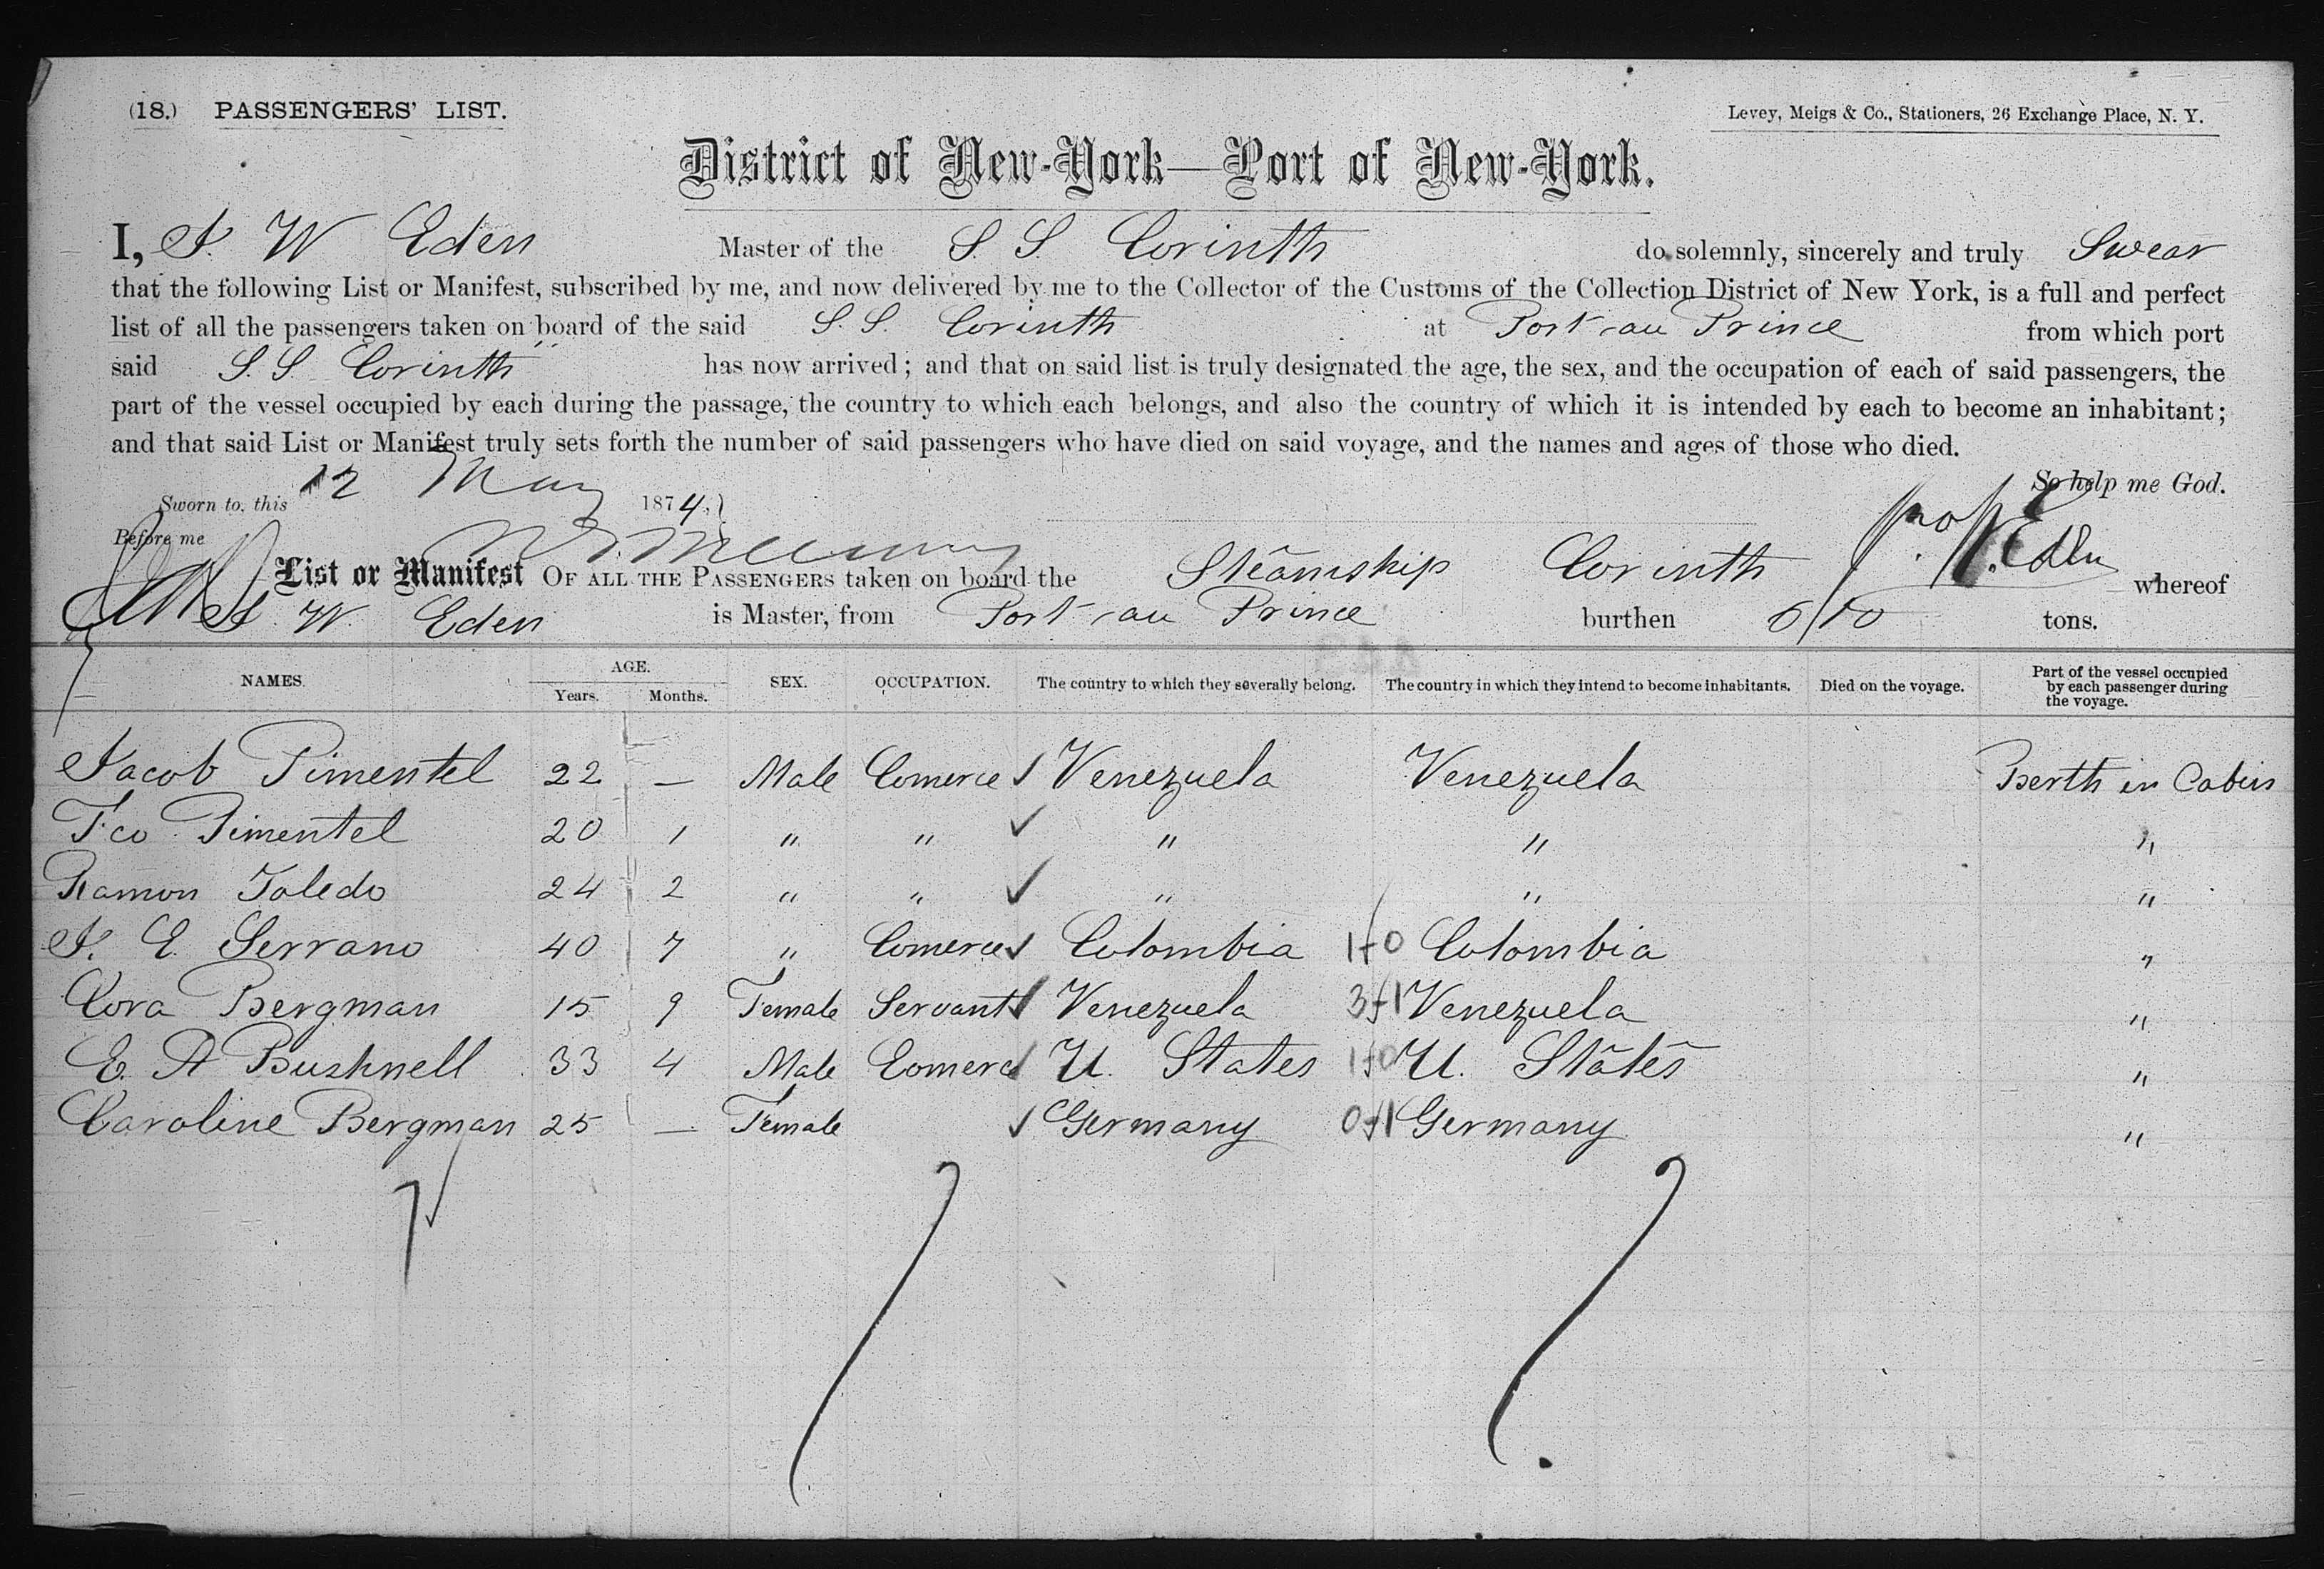 (18.) PASSENGERS' LIST.
Levey, Meigs & Co., Stationers, 26 Exchange Place, N. Y.
District of New-York—Port of New-York.
I, J. W Eden Master of the S. S. Corinth do solemnly, sincerely and truly Swear
that the following List or Manifest, subscribed by me, and now delivered by me to the Collector of the Customs of the Collection District of New York, is a full and perfect
list of all the passengers taken on board of the said S. S. Corinth at Port-au Prince from which port
said S. S. Corinth has now arrived; and that on said list is truly designated the age, the sex, and the occupation of each of said passengers, the
part of the vessel occupied by each during the passage, the country to which each belongs, and also the country of which it is intended by each to become an inhabitant;
and that said List or Manifest truly sets forth the number of said passengers who have died on said voyage, and the names and ages of those who died.
So help me God.
Sworn to, this 12 May 1874,
Before me
W. Eden
List or Manifest OF ALL THE PASSENGERS taken on board the Steamship Corinth whereof
J. W. Eden is Master, from Port-au Prince burthen tons.
NAMES. AGE. Years. Months. SEX. OCCUPATION. The country to which they severally belong. The country in which they intend to become inhabitants. Died on the voyage. Part of the vessel occupied by each passenger during the voyage.
Jacob Pimentel 22 — Male Comerce ✓ Venezuela Venezuela Berth in Cabin
Fco Pimentel 20 1 " " ✓ " " "
Ramon Toledo 24 2 " " ✓ " " "
J. E. Serrano 40 7 " Comerce ✓ Colombia 1-0 Colombia "
Cora Bergman 15 9 Female Servant ✓ Venezuela 3-1 Venezuela "
E. A Bushnell 33 4 Male Comerce ✓ U. States 1-0 U. States "
Caroline Bergman 25 — Female ✓ Germany 0-1 Germany "
7